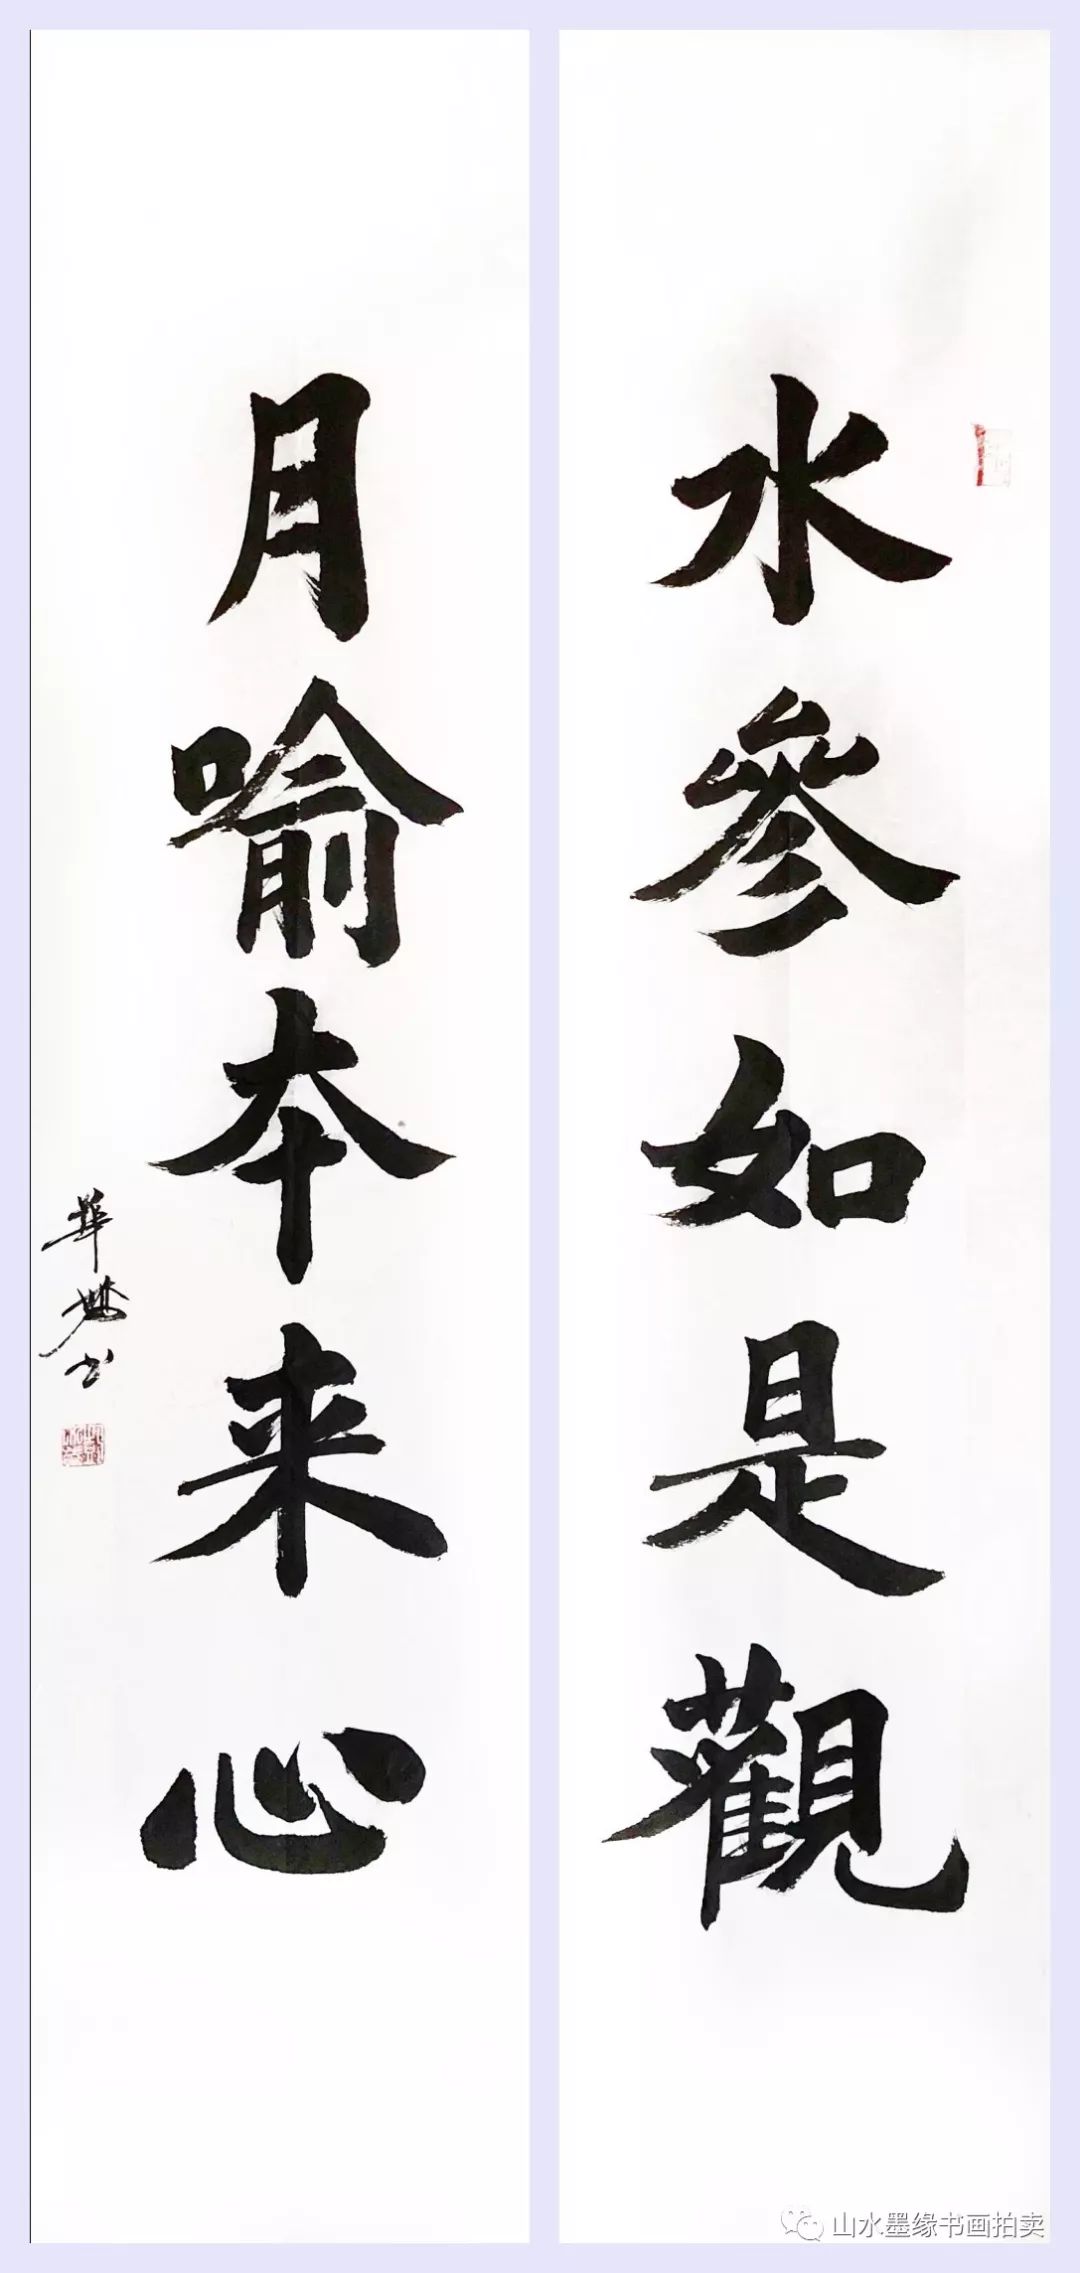 水參如是觀
月喻本来心
山水墨缘书画拍卖